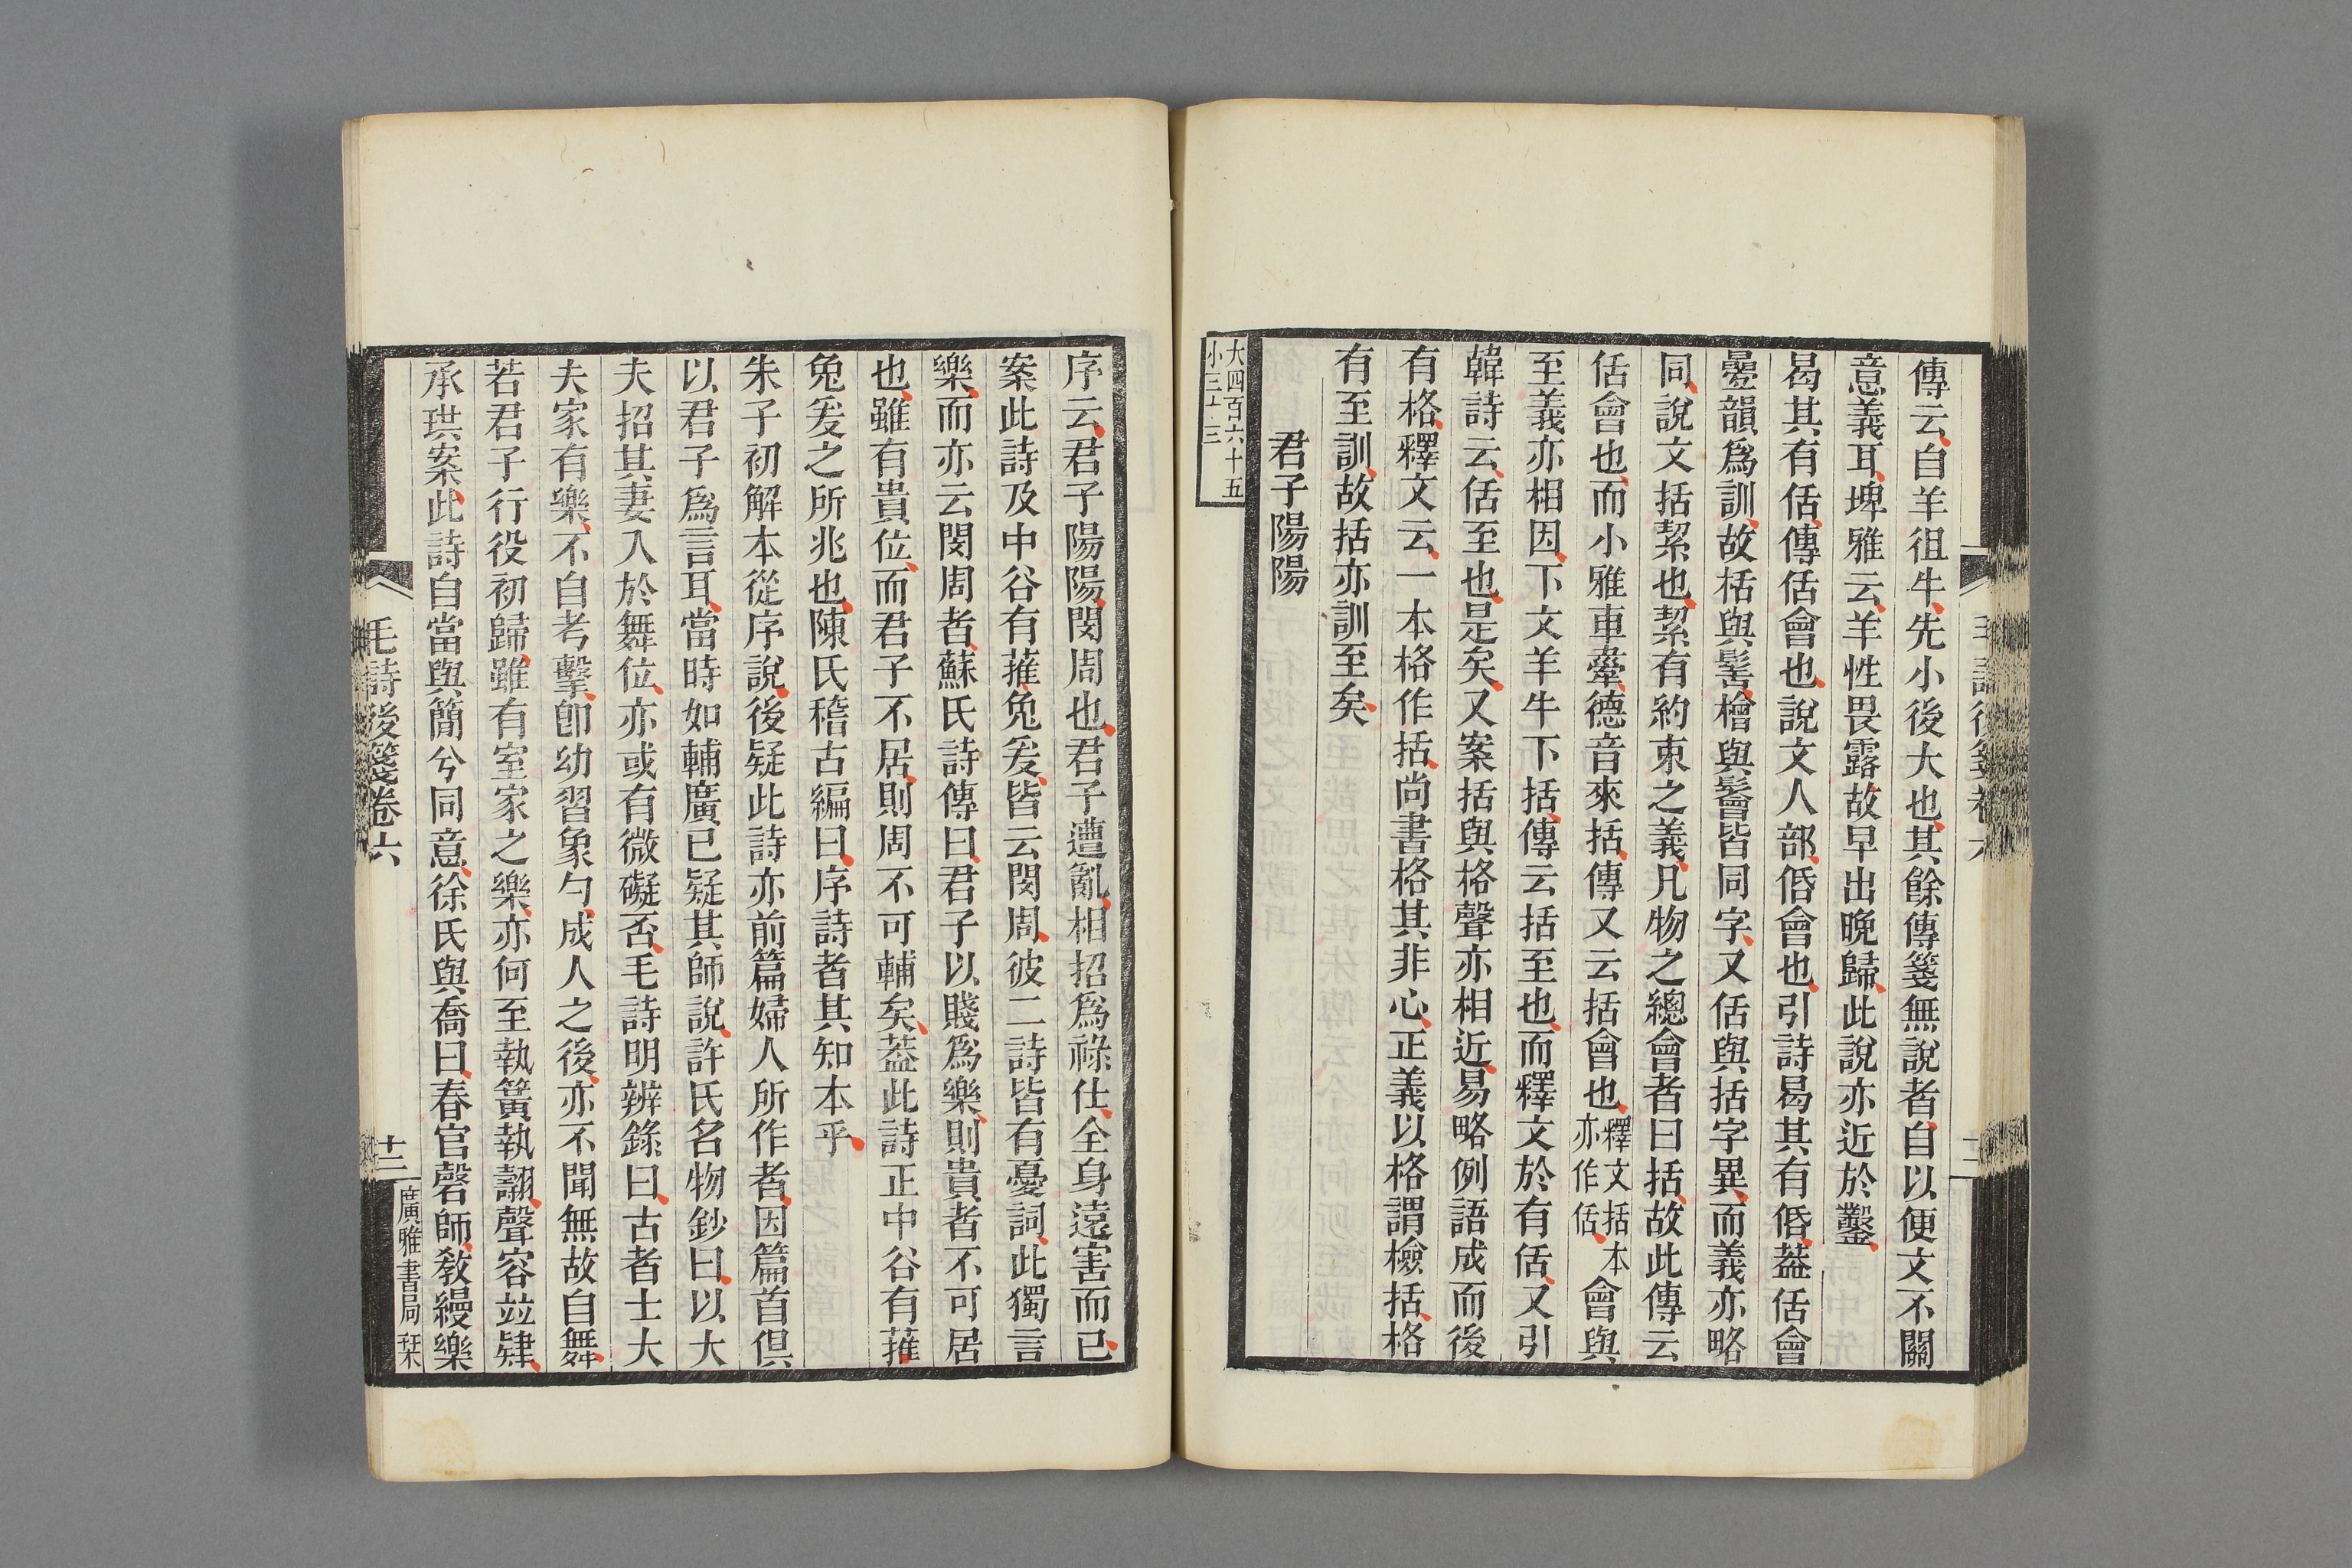 傳云自羊徂牛先小後大也其餘傳箋無說者自以便文不關
意義耳埤雅云羊性畏露故早出晚歸此說亦近於鑿
曷其有佸傳佸會也說文人部佸會也引詩曷其有佸葢佸會
疊韻爲訓故栝與髺檜與鬠皆同字又佸與括字異而義亦略
同說文括絜也絜有約束之義凡物之總會者曰括故此傳云
佸會也而小雅車舝德音來括傳又云括會也釋文括本亦作佸會與
至義亦相因下文羊牛下括傳云括至也而釋文於有佸又引
韓詩云佸至也是矣又案括與格聲亦相近易略例語成而後
有格釋文云一本格作括尚書格其非心正義以格謂檢括格
有至訓故括亦訓至矣
君子陽陽
大四百六十五
小三十三
序云君子陽陽閔周也君子遭亂相招爲祿仕全身遠害而已
案此詩及中谷有蓷兔爰皆云閔周彼二詩皆有憂詞此獨言
樂而亦云閔周者蘇氏詩傳曰君子以賤爲樂則貴者不可居
也雖有貴位而君子不居則周不可輔矣葢此詩正中谷有蓷
兔爰之所兆也陳氏稽古編曰序詩者其知本乎
朱子初解本從序說後疑此詩亦前篇婦人所作者因篇首俱
以君子爲言耳當時如輔廣已疑其師說許氏名物鈔曰以大
夫招其妻入於舞位亦或有微礙否毛詩明辨錄曰古者士大
夫家有樂不自考擊卽幼習象勺成人之後亦不聞無故自舞
若君子行役初歸雖有室家之樂亦何至執簧執翿聲容竝肄
承珙案此詩自當與簡兮同意徐氏與喬曰春官磬師敎縵樂
毛詩後箋卷六
十二
廣雅書局栞